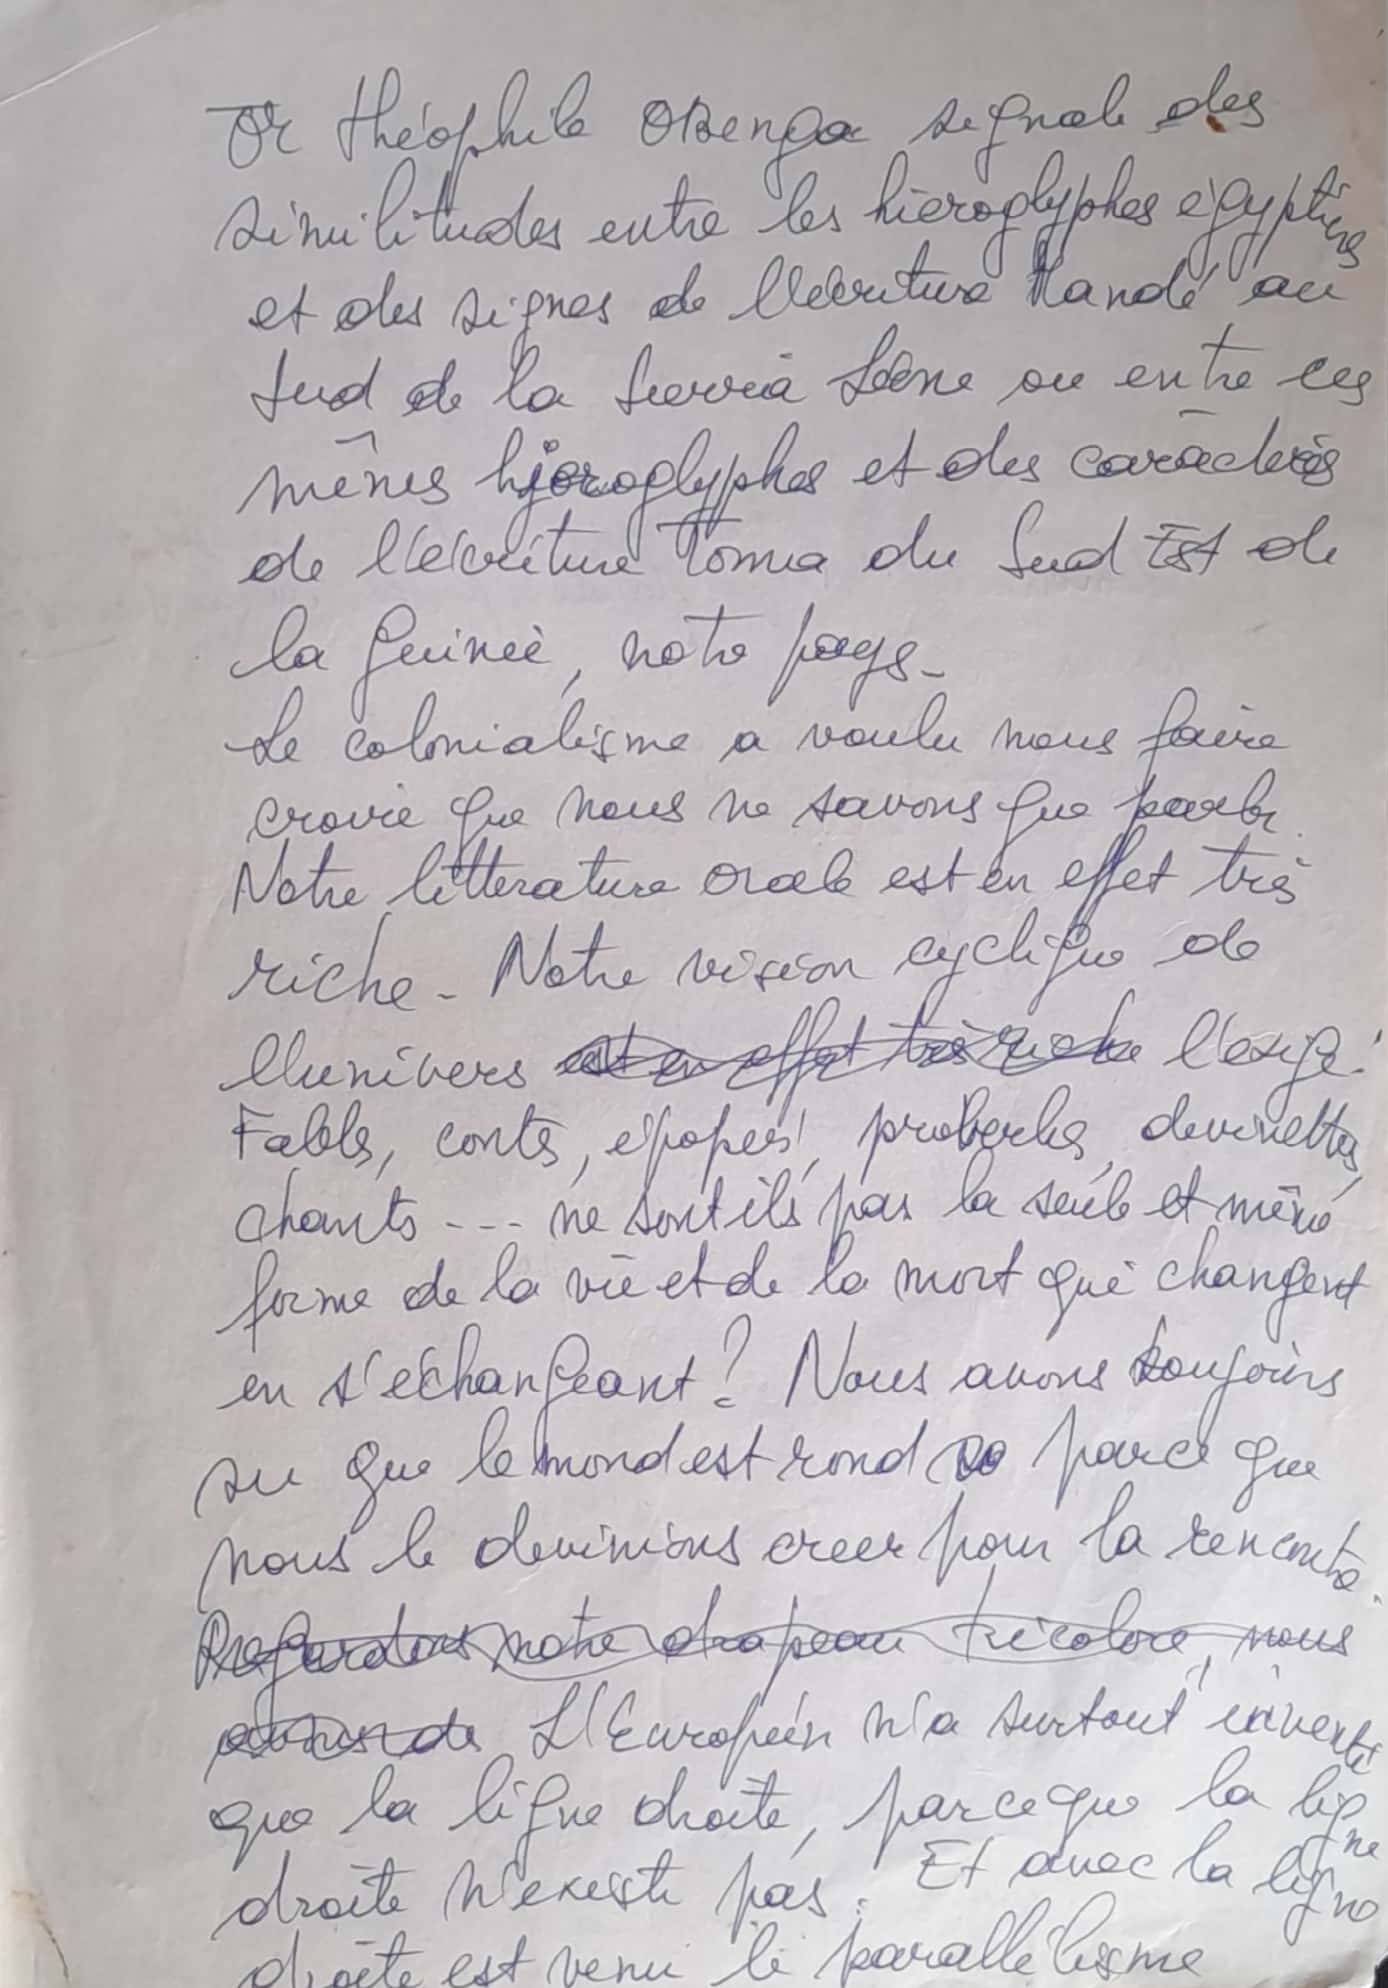 Or théophile OBenga signale des
similitudes entre les hieroglyphes égyptiens
et des signes de l'écriture Mandé au
Sud de la Sierra Léone ou entre ces
mêmes hieroglyphes et des caractères
de l'écriture Toma du Sud Est de
la Guinée, notre pays -
Le colonialisme a voulu nous faire
croire que nous ne savons que parler.
Notre litterature orale est en effet très
riche - Notre vision cyclique de
l'univers est en effet très riche l'exige.
Fables, contes, épopées, proverbes, devinettes,
chants --- ne sont ils pas la seule et même
forme de la vie et de la mort qui changent
en s'échangeant ? Nous avons toujours
su que le mond est rond parce que
nous le devinions creer pour la rencontre.
Regardons notre drapeau tricolore, nous
L'Européen n'a surtout inventé
que la ligne droite, parce que la ligne
droite n'existe pas. Et avec la ligne
droite est venu le parallélisme